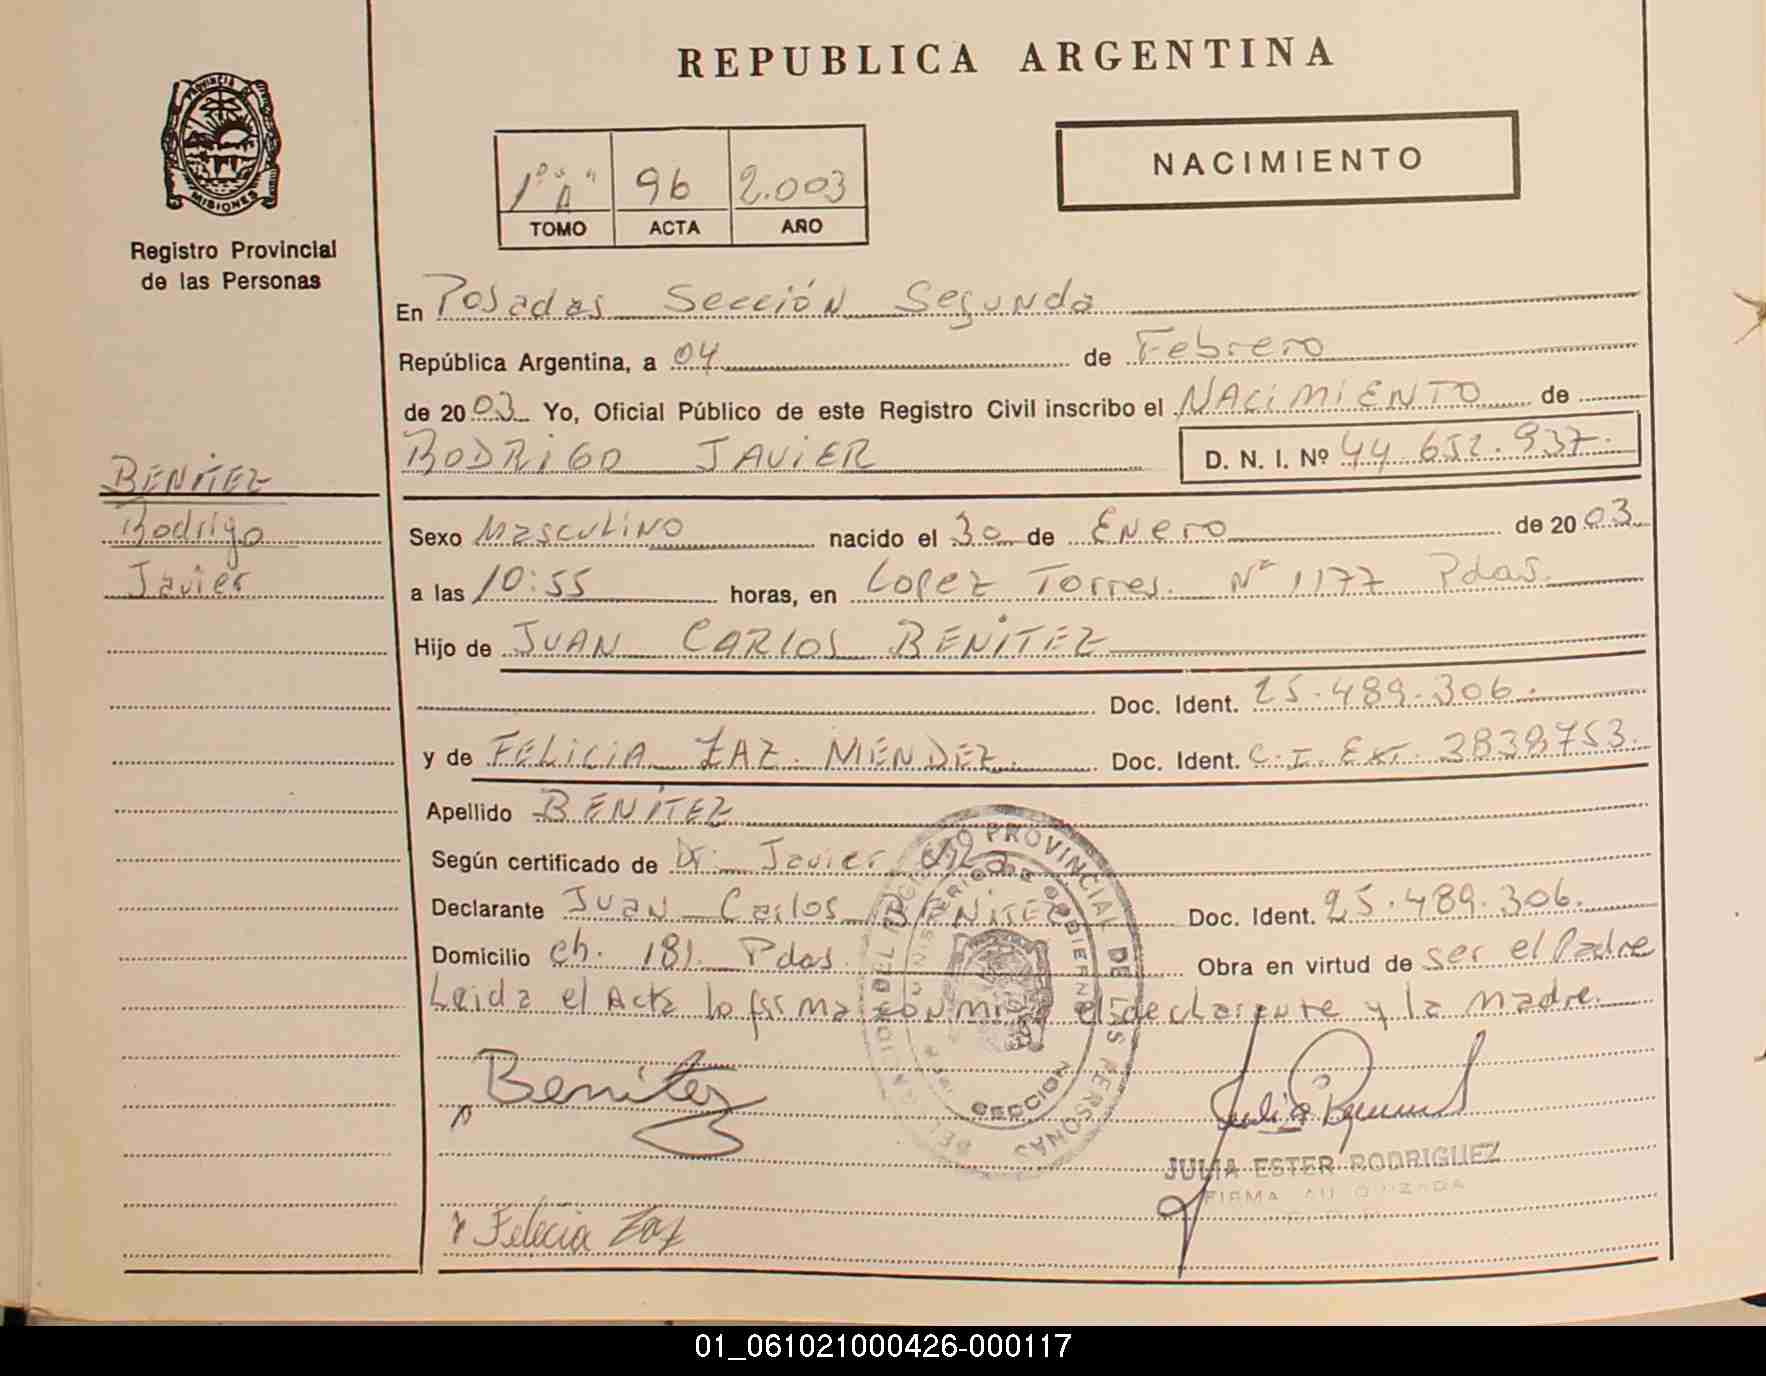 REPUBLICA ARGENTINA
PROVINCIA DE
MISIONES
Registro Provincial
de las Personas
NACIMIENTO
1º "A" 96 2.003
TOMO ACTA AÑO
En Posadas Sección Segunda
República Argentina, a 04 de Febrero
de 2003 Yo, Oficial Público de este Registro Civil inscribo el NACIMIENTO de
RODRIGO JAVIER D. N. I. Nº 44.652.937.
BENITEZ
Rodrigo
Javier
Sexo Masculino nacido el 30 de Enero de 2003
a las 10:55 horas, en Lopez Torres. Nº 1177 Pdas.
Hijo de JUAN CARLOS BENITEZ
Doc. Ident. 25.489.306.
y de FELICIA ZAZ MENDEZ. Doc. Ident. C.I. Ext. 3838753.
Apellido BENITEZ
Según certificado de Dr. Javier
Declarante Juan Carlos BENITEZ Doc. Ident. 25.489.306.
Domicilio Ch. 181. Pdas. Obra en virtud de ser el Padre
Leida el Acta lo firma con migo el declarante y la madre.
PROVINCIAL DE LAS PERSONAS
SECCION
Benitez
JULIA ESTER RODRIGUEZ
FIRMA AUTORIZADA
Felecia Zaz
01_061021000426-000117